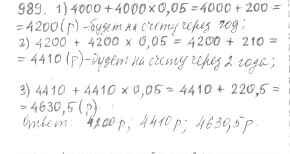 989. 1) 4000+4000×0,05=4000+200=
=4200(р)-будет на счету через год;
2) 4200 + 4200 × 0,05 = 4200 + 210 =
= 4410 (р)-будет на счету через 2 года;
3) 4410 + 4410 × 0,05 = 4410 + 220,5 =
= 4630,5 (р)
Ответ: 4200 р; 4410 р; 4630,5 р.